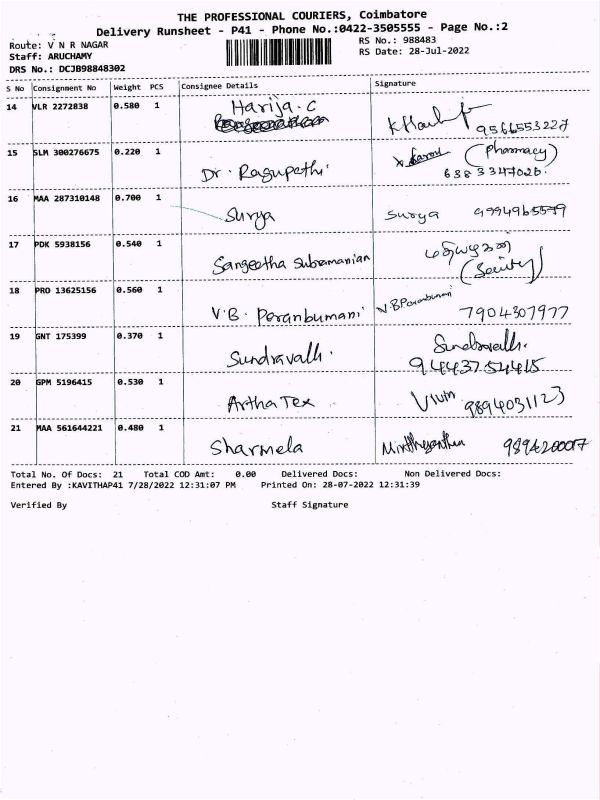 THE PROFESSIONAL COURIERS, Coimbatore
Delivery Runsheet - P41 - Phone No.:0422-3505555 - Page No.:2
Route: V N R NAGAR RS No.: 988483
Staff: ARUCHAMY RS Date: 28-Jul-2022
DRS No.: DCJB98848302
S No Consignment No Weight PCS Consignee Details Signature
14 VLR 2272838 0.580 1 Harija.C 9566553227
15 SLM 300276675 0.220 1 Dr. Ragupathi (Pharmacy)
6383347026.
16 MAA 287310148 0.700 1 Surya Surya 9994965579
17 PDK 5938156 0.540 1 Sangeetha Subramanian
18 PRO 13625156 0.560 1 V.B. Peranbumani V.B Peranbumani 7904307977
19 GNT 175399 0.370 1 Sundravalli. Sundravalli.
9443754415
20 GPM 5196415 0.530 1 Artha Tex 9894031123
21 MAA 561644221 0.480 1 Sharmela 9894200017
Total No. Of Docs: 21 Total COD Amt: 0.00 Delivered Docs: Non Delivered Docs:
Entered By :KAVITHAP41 7/28/2022 12:31:07 PM Printed On: 28-07-2022 12:31:39
Verified By Staff Signature